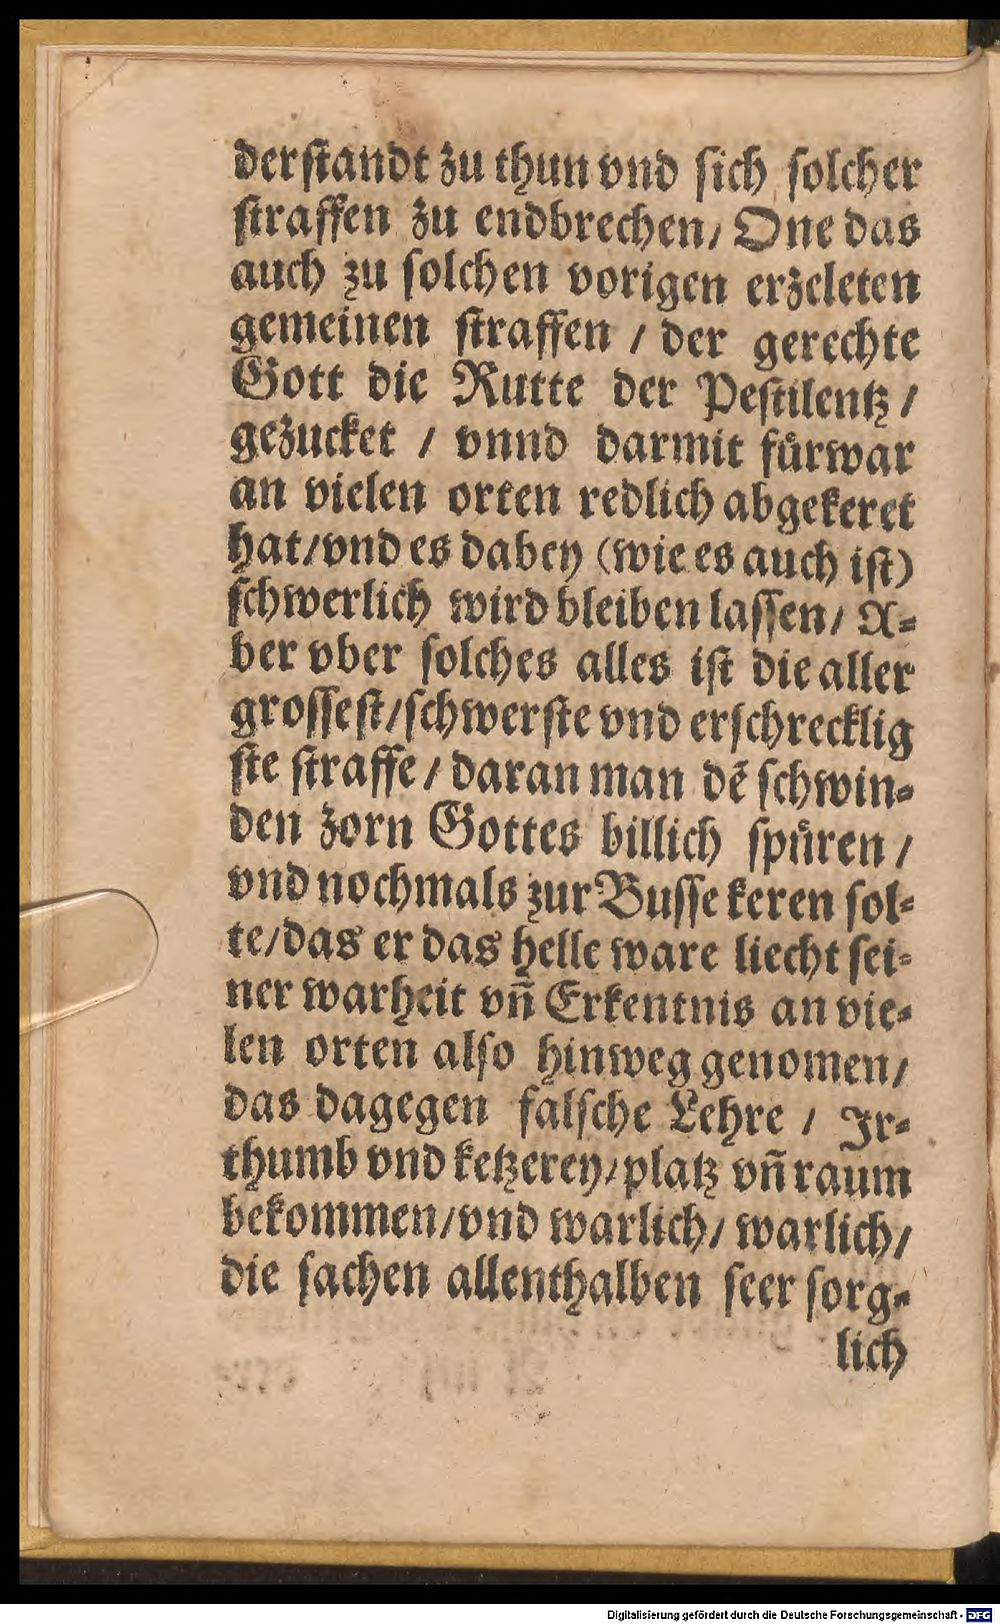 derſtandt zu thun vnd ſich ſolcher
ſtraffen zu endbrechen/ One das
auch zu ſolchen vorigen erzeleten
gemeinen ſtraffen / der gerechte
Gott die Rutte der Peſtilentz /
gezucket / vnnd darmit fuͤrwar
an vielen orten redlich abgekeret
hat/vnd es dabey (wie es auch iſt)
ſchwerlich wird bleiben laſſen/ A⸗
ber vber ſolches alles iſt die aller
groſſeſt/ſchwerſte vnd erſchrecklig
ſte ſtraffe / daran man dẽ ſchwin⸗
den zorn Gottes billich ſpuͤren /
vnd nochmals zur Buſſe keren ſol⸗
te/das er das helle ware liecht ſei⸗
ner warheit vñ Erkentnis an vie⸗
len orten alſo hinweg genomen/
das dagegen falſche Lehre / Jr⸗
thumb vnd ketzerey/platz vñ raum
bekommen/vnd warlich/ warlich/
die ſachen allenthalben ſeer ſorg⸗
lich
Digitalisierung gefördert durch die Deutsche Forschungsgemeinschaft - DFG